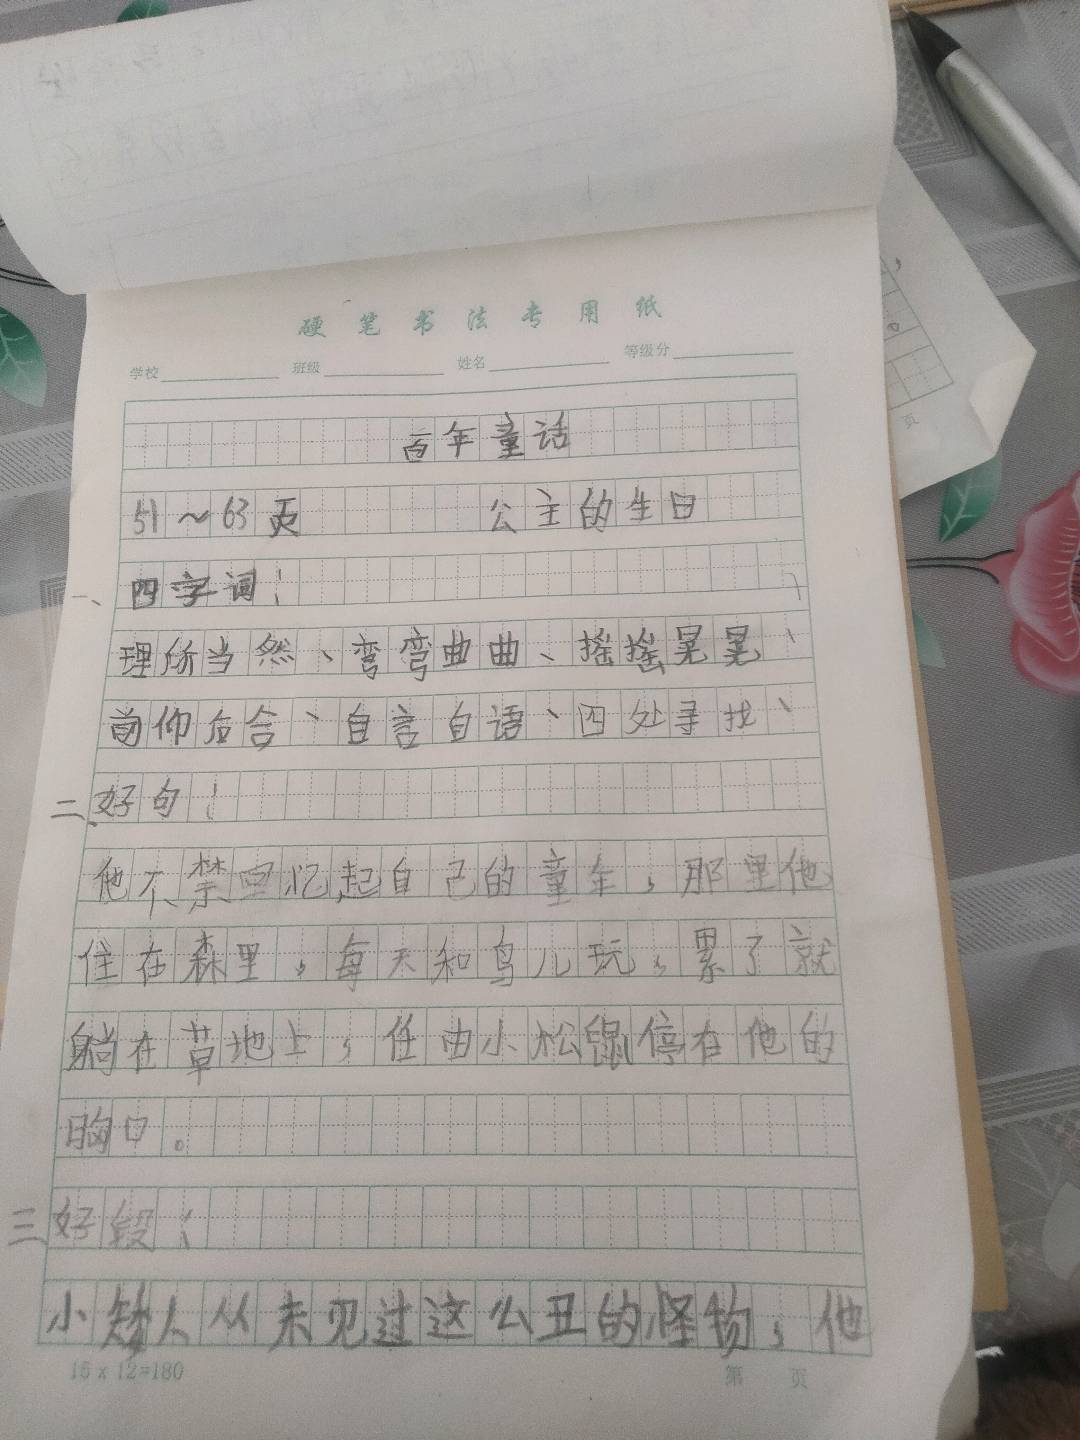 硬笔书法专用纸
学校 班级 姓名 等级分
百年童话
51~63页 公主的生日
一、四字词：
理所当然、弯弯曲曲、摇摇晃晃、
前仰后合、自言自语、四处寻找、
二、好句：
他不禁回忆起自己的童年，那里他
住在森里，每天和鸟儿玩，累了就
躺在草地上，任由小松鼠停在他的
胸口。
三好段：
小矮人从未见过这么丑的怪物，他
15x12=180
第 页
页